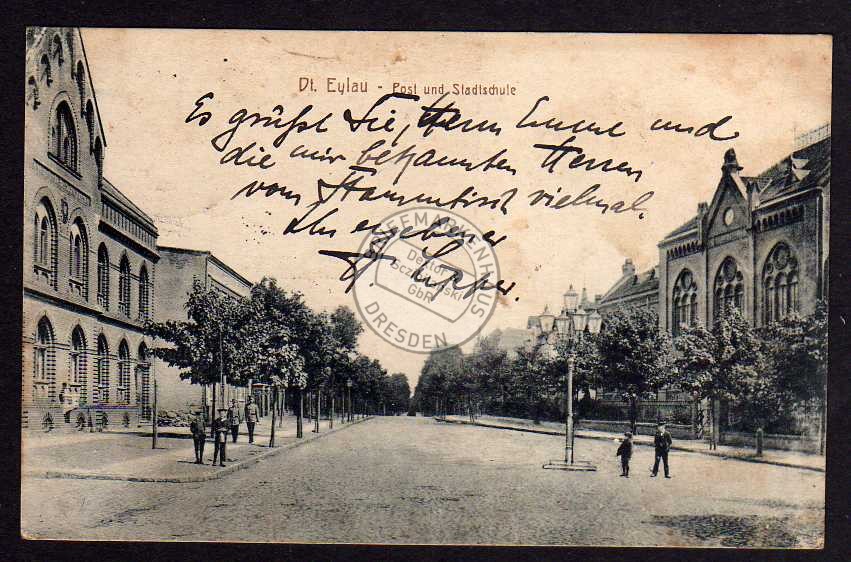 Dt. Eylau - Post und Stadtschule
Es grüßt Sie, Herrn und
die mir bekannten Herren
vom Stammtisch vielmal,
Ihr ergebener
BRIEFMARKEN-
Doktor
Sczibilanski
GbR
DRESDEN